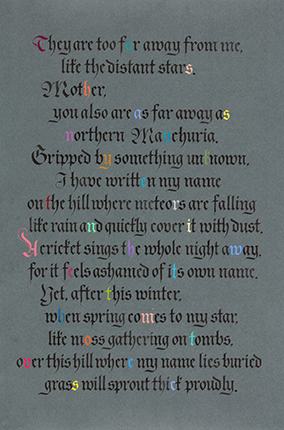 They are too far away from me,
like the distant stars.
Mother,
you also are as far away as
northern Manchuria.
Gripped by something unknown,
I have written my name
on the hill where meteors are falling
like rain and quickly cover it with dust.
A cricket sings the whole night away,
for it feels ashamed of its own name.
Yet, after this winter,
when spring comes to my star,
like moss gathering on tombs,
over this hill where my name lies buried
grass will sprout thick proudly.